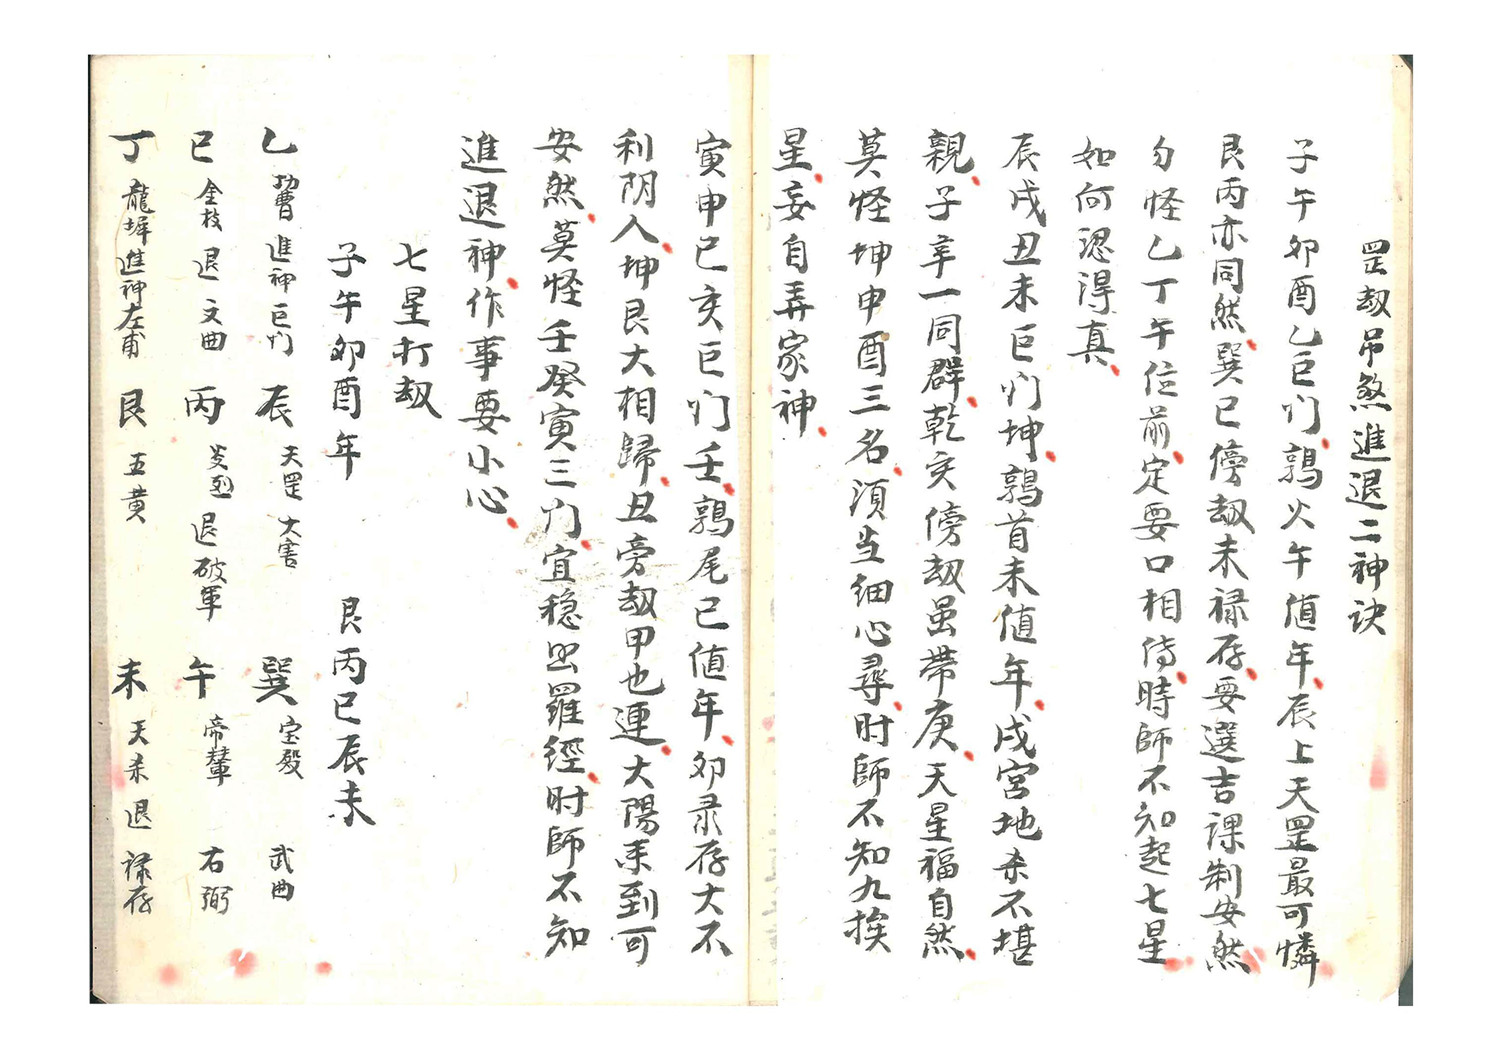 罡刼吊煞進退二神诀
子午卯酉乙巨门鶉火午值年辰上天罡最可憐
艮丙亦同然巽巳傍刼未禄存要選吉課制安然
勿怪乙丁午位前定要口相侍時師不知起七星
如何認得真
辰戌丑未巨门坤鶉首未值年戌宮地杀不堪
親子辛一同群乾亥傍刼虽帶庚天星福自然
莫怪坤申酉三名須当細心尋时師不知九挨
星妄自弄家神
寅申巳亥巨门壬鶉尾巳值年卯录存大不
利阴人坤艮大相歸丑旁刼甲也連大陽来到可
安然莫怪壬癸寅三门宜稳坐羅經时師不知
進退神作事要小心
七星打刼
子午卯酉年 艮丙巳辰未
乙 進神巨门 辰 天罡 大害 巽 宝殿 武曲
巳 金枝 退 文曲 丙 退 破軍 午 帝輦 右弼
丁 龍墀 進神左甫 艮 五黄 未 天杀 退 禄存